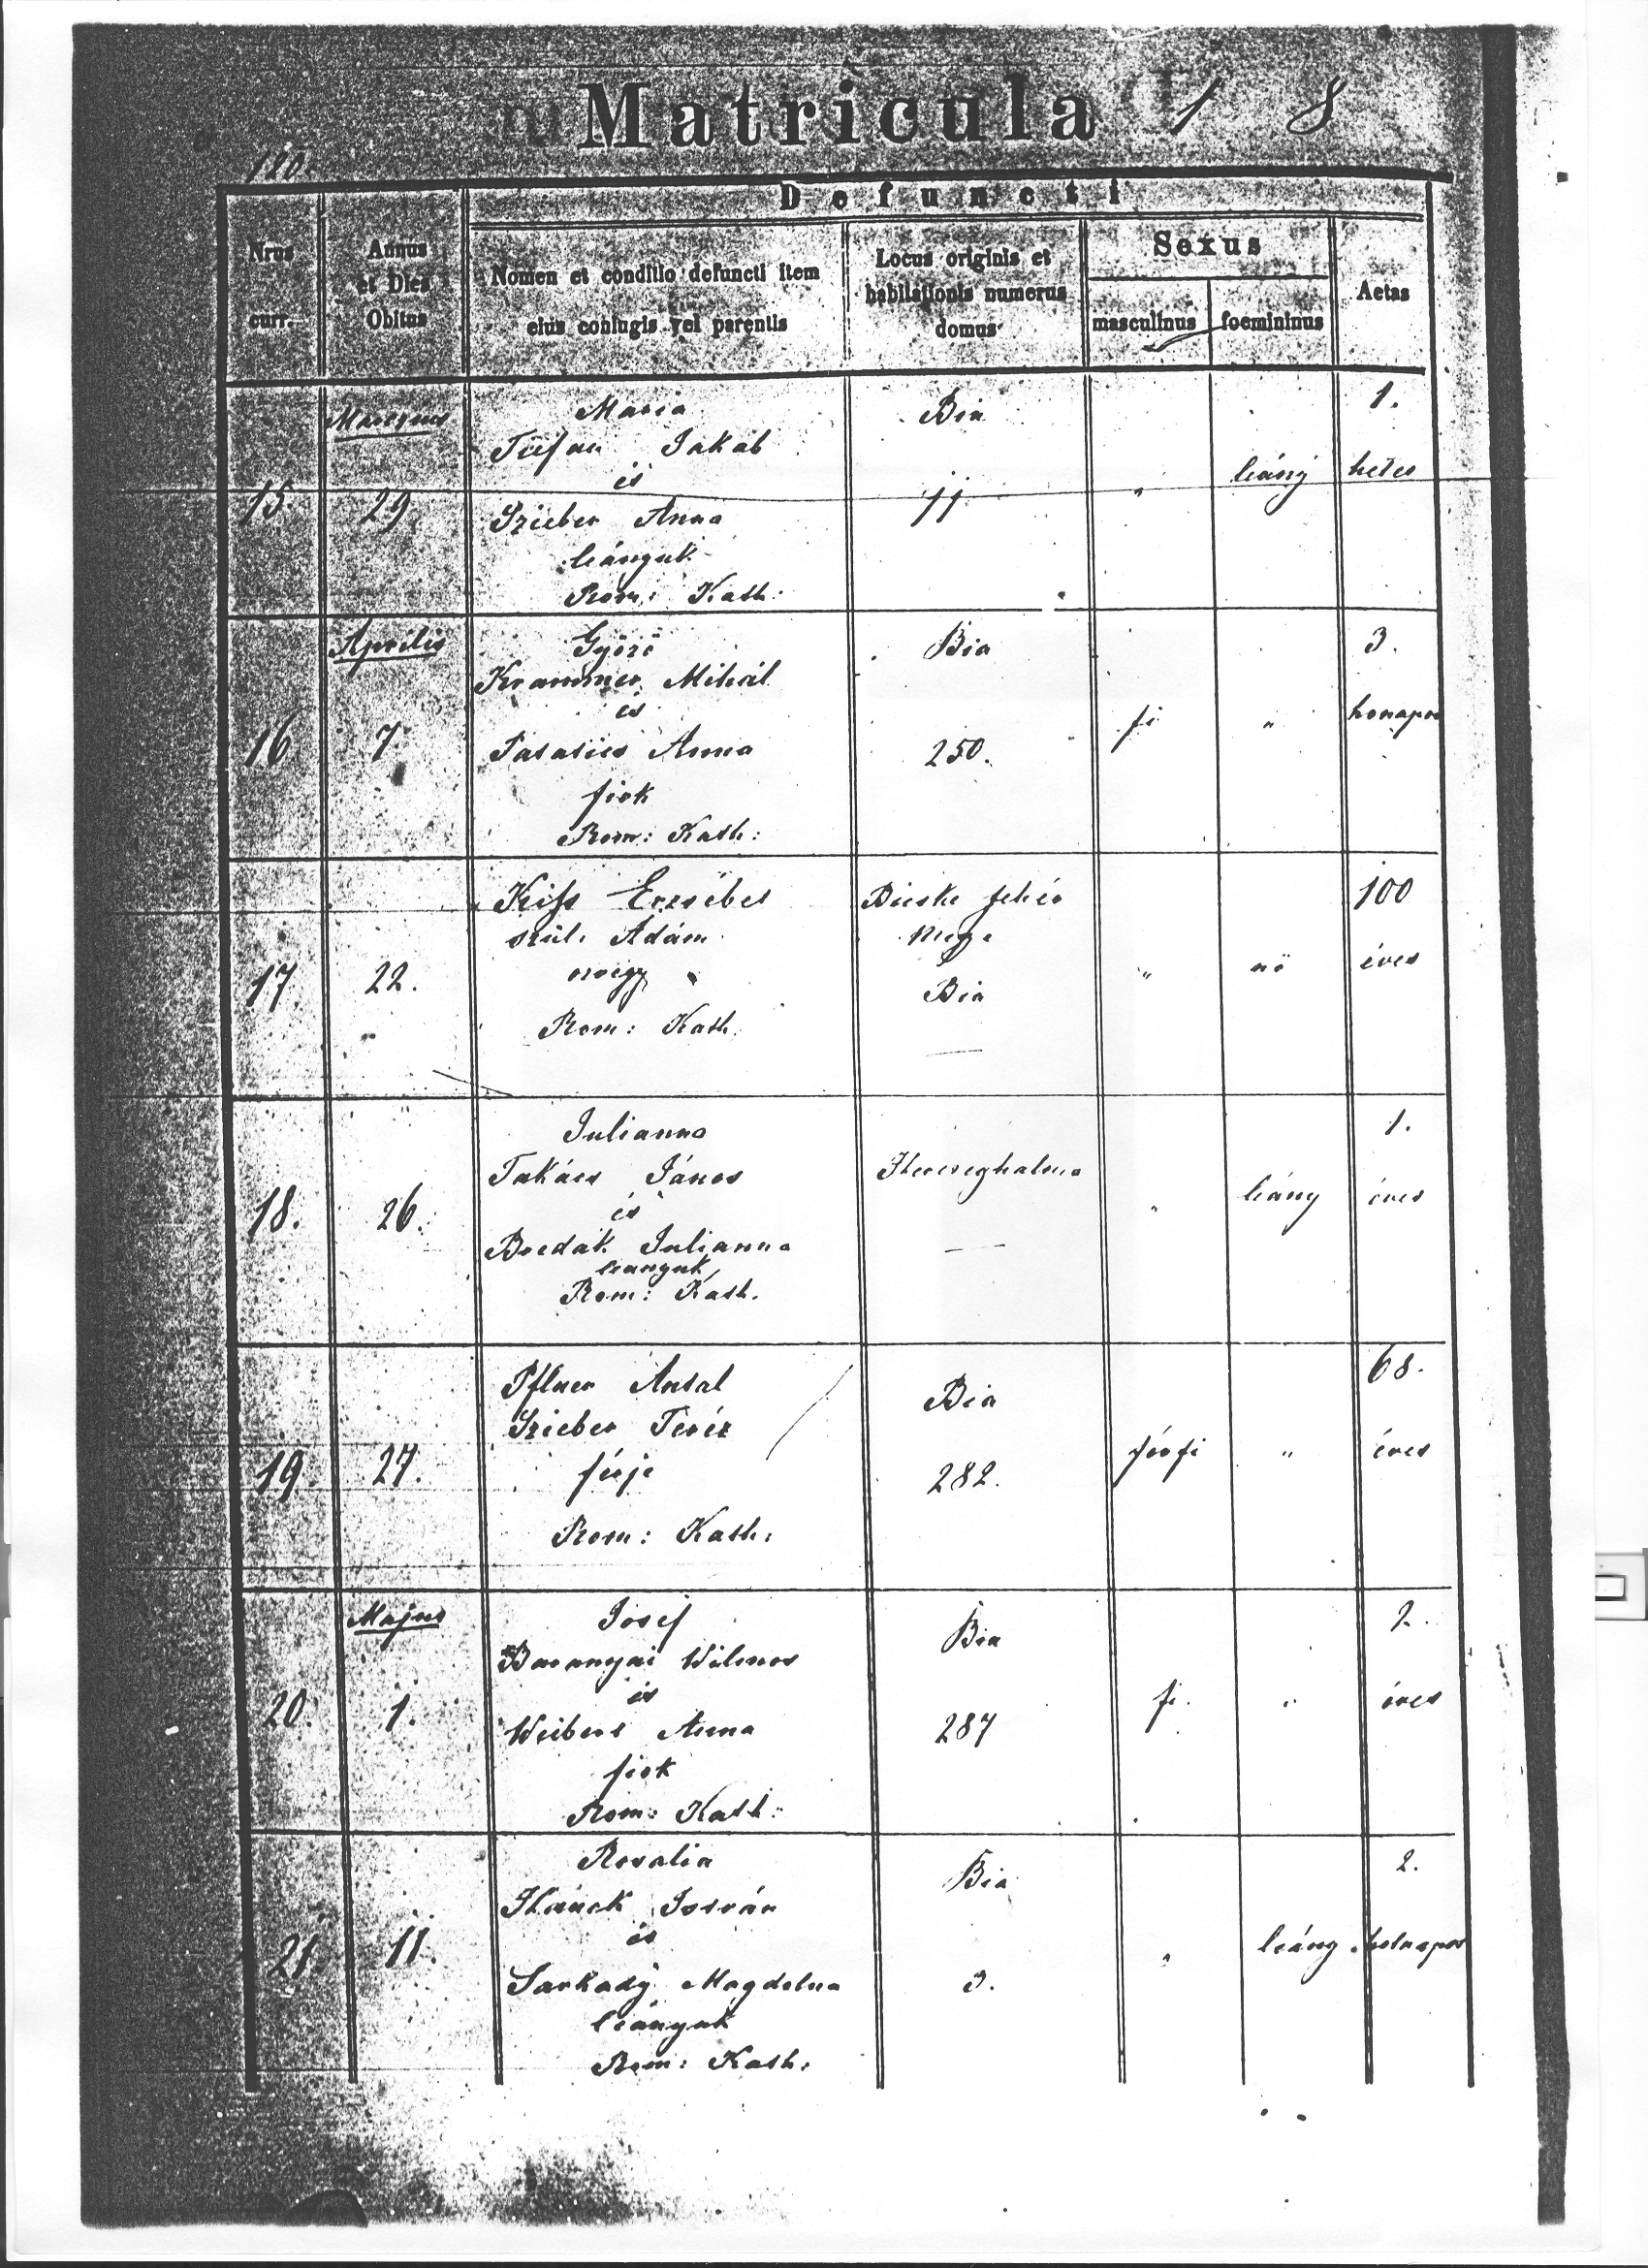 Matricula 1 8
120.
Defuncti
Nrus curr.
Annus et Dies Obitus
Nomen et conditio defuncti item eius coniugis vel parentis
Locus originis et habitationis numerus domus
Sexus
masculinus
foemininus
Aetas
Marczius
Maria
Bia
1.
Jakab
és
leány
hetes
15.
29.
Szieber Anna
11
"
leányuk
Rom: Kath:
Április
Győző
Bia
3.
Krammer Mihál
és
fi
"
honapos
16
7
Anna
250.
fiok
Rom: Kath:
Kiss Erzsébet
Bicske fehér
100
szül. Ádám
meg.
özvegy
"
nő
éves
17
22.
Bia
Rom: Kath.
Julianna
1.
Takács János
Herczeghalma
és
"
leány
éves
18.
26.
Julianna
leanyuk
Rom: Kath.
Antal
Bia
68.
Szieber Teréz
férfi
"
éves
19.
27.
férje
282.
Rom: Kath:
Majus
Josef
Bia
2.
Baranyai Vilmos
és
fi.
"
éves
20.
1.
Anna
287
fiok
Rom: Kath:
Rosalia
Bia
2.
István
és
"
leány
holnapos
21.
11.
Sarkady Magdolna
3.
leányuk
Rom: Kath: